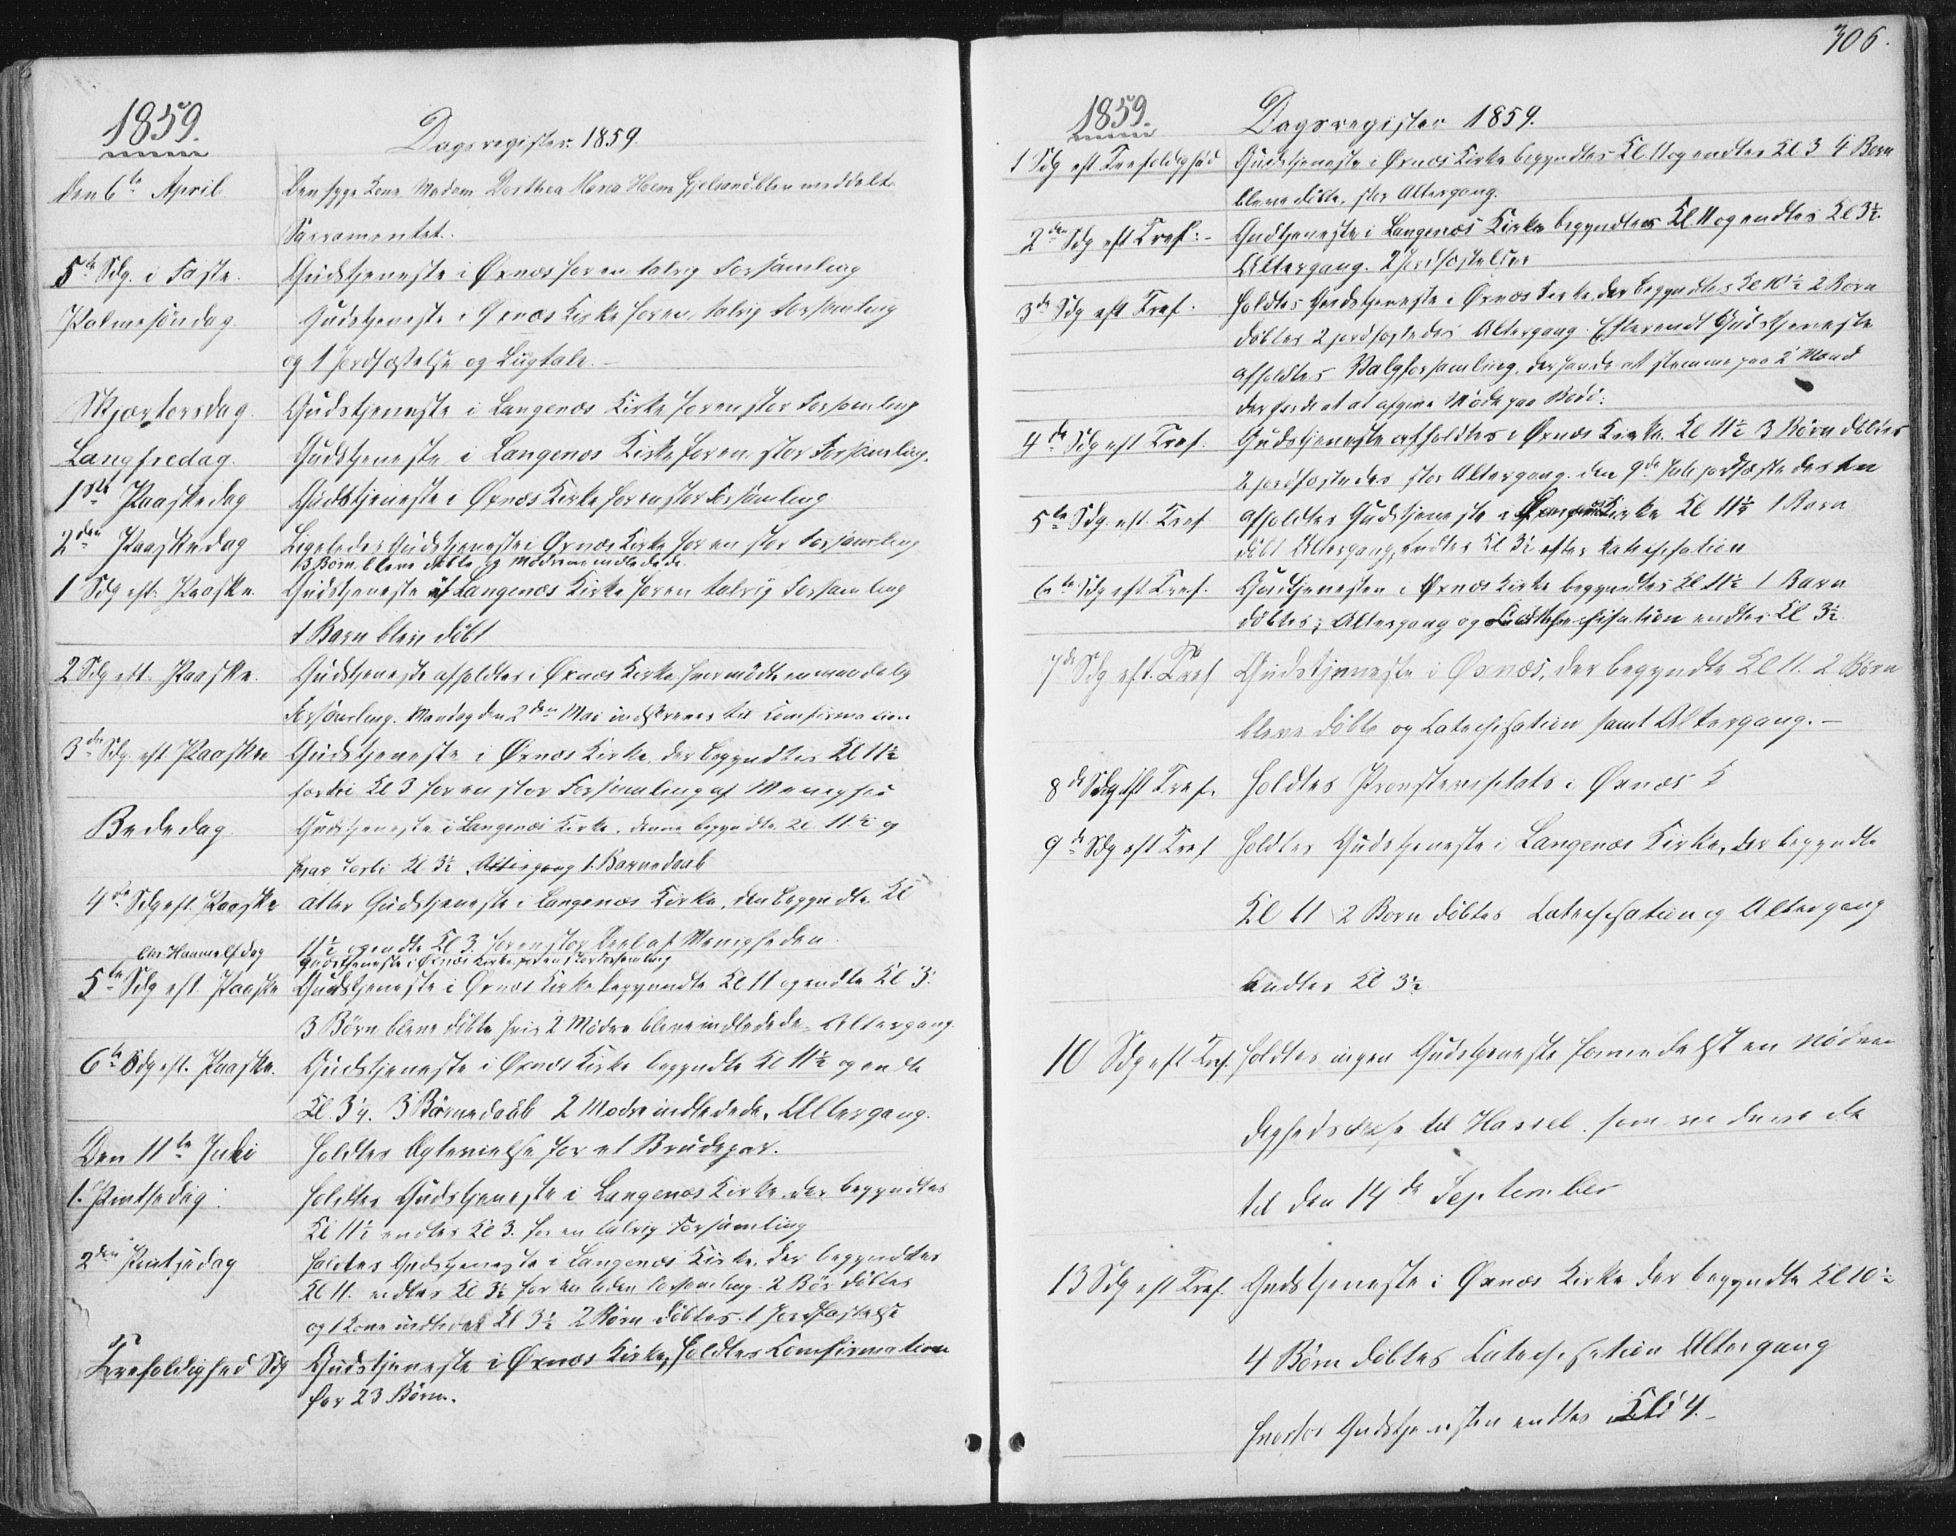 1859.
Dagsregister 1859.
Den 6te April Den syge Kone Madam Dorthea Maria Gjelsand blev meddelt
Sacramentet.
5te Sdg. i Faste. Gudstjeneste i Øxnæs for en talrig Forsamling
Palmesøndag. Gudstjeneste i Øxnæs Kirke for en talrig Forsamling
og 1 Jordfæstelse og Liigtale.
Skjærtorsdag. Gudstjeneste i Langenæs Kirke for en stor Forsamling
Langfredag. Gudstjeneste i Langenæs Kirke for en stor Forsamling.
1ste Paaskedag Gudstjeneste i Øxnæs Kirke for en stor Forsamling
2den Paaskedag Ligeledes Gudstjeneste i Øxnæs Kirke for en stor Forsamling
3 Børn bleve døbte og Mødrene indledede.
1 Sdg eft. Paaske. Gudstjeneste i Langenæs Kirke for en talrig Forsamling
1 Barn blev døbt
2 Sdg eft. Paaske. Gudstjeneste afholdtes i Øxnæs Kirke hvor mødte en maadelig
Forsamling. Mandag den 2den Mai indskreves til Confirmation
3die Sdg. eft Paaske Gudstjeneste i Øxnæs Kirke, der begyndtes Kl 11½
forbi Kl 3 for en stor Forsamling af Menighed
Bededag. Gudstjeneste i Langenæs Kirke, denne begyndte Kl 11½ og
var forbi Kl 3½. Altergang 1 Barnedaab
4de Sdg eft. Paaske atter Gudstjeneste i Langenæs Kirke, den begyndte Kl
11½ og endte Kl 3. for en stor Deel af Menigheden.
Chr. Himmelfdag Gudstjeneste i Øxnæs Kirke for en stor Forsamling
5te Sdg eft Paaske Gudstjeneste i Øxnæs Kirke begyndte Kl 11 og endte Kl 3.
3 Børn bleve døbte hvis 2 Mødre bleve indledede. Altergang.
6te Sdg eft. Paaske. Gudstjeneste i Øxnæs Kirke begyndte Kl 11½ og endte
Kl. 3¼. 3 Barnedaab 2 Mødre indledede, Altergang.
Den 11te Juni holdtes Ægtevielse for et Brudepar.
1. Pintsedag: holdtes Gudstjeneste i Langenæs Kirke der begyndtes
Kl 11½ endtes Kl 3. for en talrig Forsamling
2den Pintsedag holdtes Gudstjeneste i Langenæs Kirke, der begyndtes
Kl 11. endtes Kl 3½ for en liden Forsamling. 2 Bør døbtes
og 1 Kone indledet Kl 3½ 2 Børn døbtes. 1 Jordfæstelse
Trefoldighed Sdg Gudstjeneste i Øxnæs Kirke, holdtes Comfirmation
for 23 Børn.
306.
1859.
Dagsregister 1859.
1 Sdg eft Trefoldighed Gudstjeneste i Øxnæs Kirke begyndtes Kl 11 og endtes Kl 3 4 Børn
bleve døbte, stor Altergang.
2den Sdg eft Tref: Gudtjeneste i Langenæs Kirke begyndtes Kl 11 og endtes Kl 3½.
Altergang. 2 Jordfæstelser
3die Sdg eft Tref. holdtes Gudstjeneste i Øxnæs Kirke der begyndtes Kl 10½ 2 Børn
døbtes 2 jordfæstedes Altergang. Efterendt Gudstjeneste
afholdtes Valgforsamling, der havde at stemme paa 2 Mænd
der havde at afgive Møde paa Bodø.
4de Sdg eft Tref. Gudstjeneste afholdtes i Øxnæs Kirke Kl 11½ 3 Børn døbtes
2 jordfæstedes stor Altergang. den 9de Juli jordfæstedes en
5te Sdg. eft. Tref. afholdtes Gudstjeneste i Kirke Kl 11½ 1 Barn
døbt Altergang, endtes Kl 3½ efter Katechisation
6te Sdg eft Tref. Gudtjenesten i Øxnæs Kirke begyndtes Kl 11½ 1 Barn
døbtes; Altergang og Catechisation endtes Kl 3½.
7de Sdg eft. Tref Gudstjeneste i Øxnæs, der begyndte Kl 11. 2 Børn
bleve døbte og Catechisation samt Altergang.
8de Sdg eft Tref. holdtes Provstevisitats i Øxnæs K
9de Sdg eft Tref holdtes Gudstjeneste i Langenæs Kirke, der begyndte
Kl 11 2 Børn døbtes Catechisation og Altergang
Endtes Kl 3½
10 Sdg eft Tref. holdtes ingen Gudstjeneste formedelst en nødven
dighedsreise til Hassel. som varede
til den 14de September
13 Sdg eft Tref. Gudstjeneste i Øxnæs Kirke der begyndte Kl 10½
4 Børn døbtes Catechisation Altergang
hvorfor Gudstjenesten endtes Kl 4.